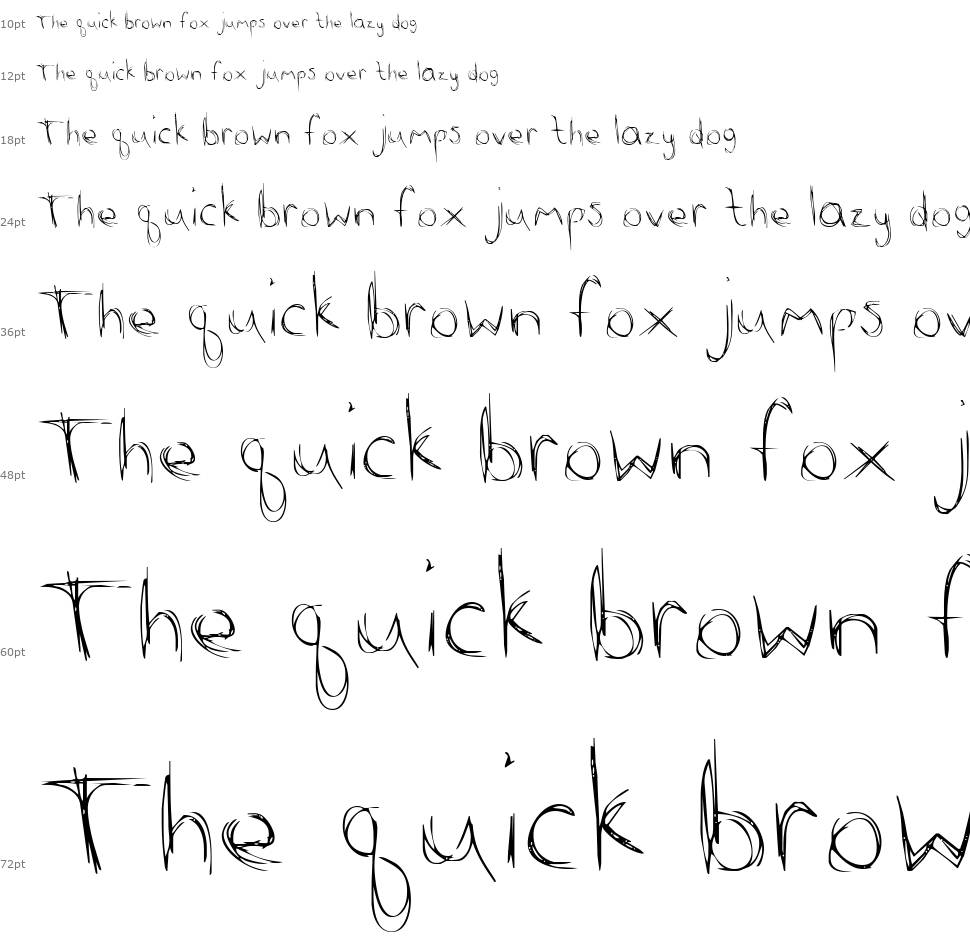 10pt The quick brown fox jumps over the lazy dog
12pt The quick brown fox jumps over the lazy dog
18pt The quick brown fox jumps over the lazy dog
24pt The quick brown fox jumps over the lazy dog
36pt The quick brown fox jumps ov
48pt The quick brown fox j
60pt The quick brown f
72pt The quick brow